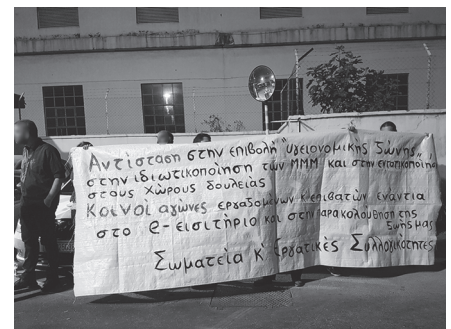 Αντίσταση στην επιβολή "υγειονομικής ζώνης",
στην ιδιωτικοποίηση των ΜΜΜ και στην εντατικοποίηση
στους χώρους δουλειάς
Κοινοί αγώνες εργαζομένων κ' επιβατών ενάντια
στο e-εισιτήριο και στην παρακολούθηση της
ζωής μας
Σωματεία κ' Εργατικές Συλλογικότητες